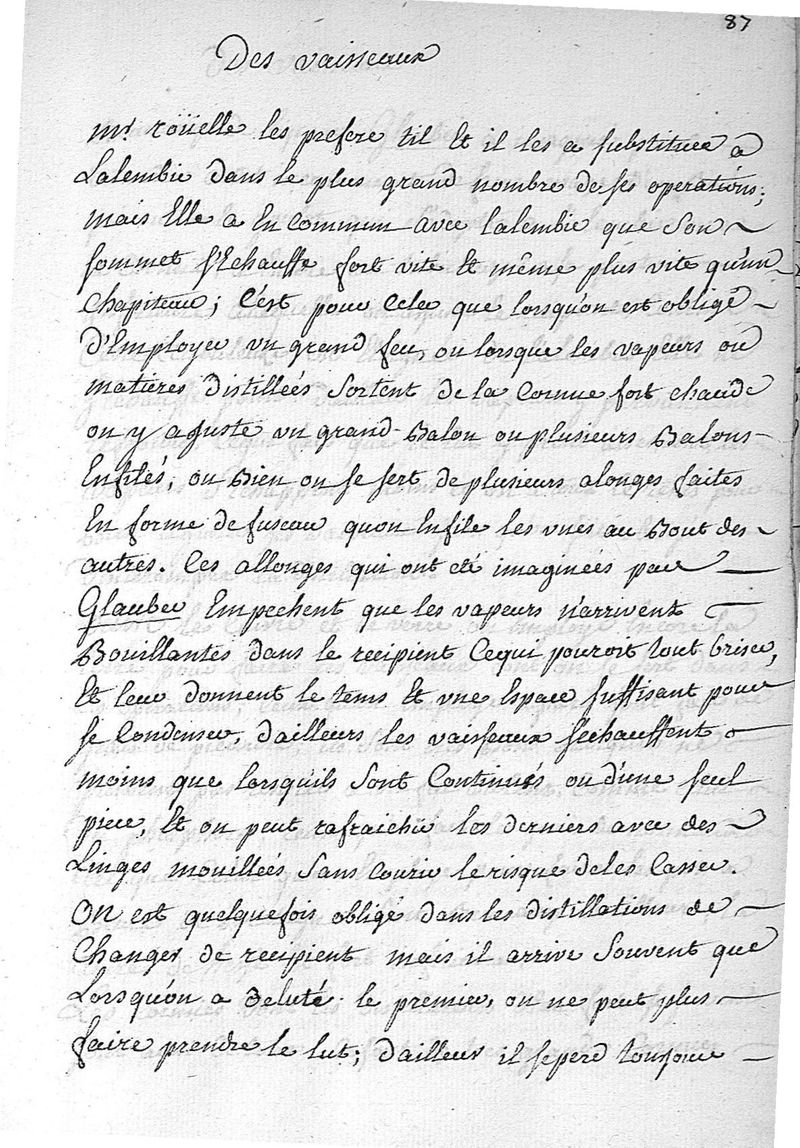 87
Des vaisseaux
mr. roüelle les prefere til Et il les a substituee a
Lalembic dans le plus grand nombre de ses operations;
mais Elle a En commun avec lalembic que Son
sommet s'Echauffe fort vite Et même plus vite qu'un
Chapiteau; C'est pour Cela que lorsqu'on est obligé
D'Employer un grand feu, ou lorsque les vapeurs ou
matières distilleés Sortent de la Cornue fort chaude
on y ajuste un grand Balon ou plusieurs Balons
Enfilés, ou Bien on se sert de plusieurs alonges faites
En forme de fuseau quon Enfile les unes au Bout des
autres. Ces allonges qui ont eté imagineés par
Glauber Empechent que les vapeurs n'arrivent
Bouillantes dans le recipient Cequi pouroit tout briser,
Et leur donnent le tems Et une Espace suffisant pour
se Condenser, d'ailleurs les vaisseaux s'échauffent
moins que lorsquils Sont Continués ou d'une seul
piece, Et on peut rafraichir les derniers avec des
Linges mouilleés Sans Courir le risque de les Casser.
On est quelquefois obligé dans les distillations de
Changer de recipient mais il arrive Souvent que
Lorsqu'on a Deluté le premier, on ne peut plus
faire prendre le lut; d'ailleurs il se perd toujours